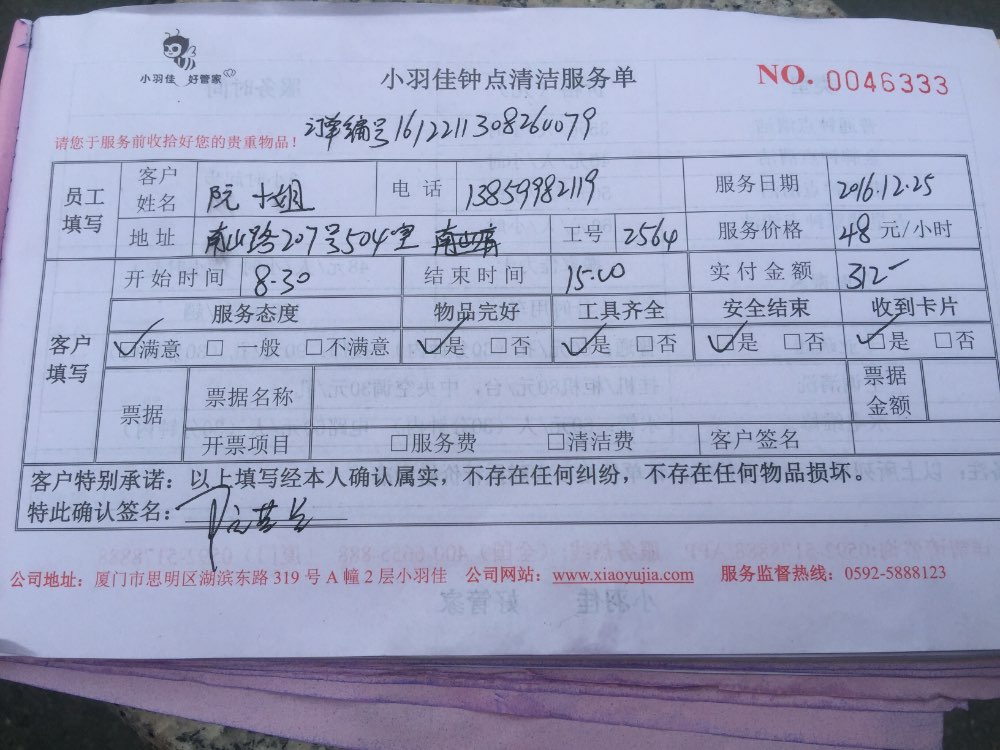 小羽佳 好管家
小羽佳钟点清洁服务单
NO. 0046333
请您于服务前收拾好您的贵重物品！
订单编号1612211308260079
员工填写 客户姓名 阮小姐 电话 13859982119 服务日期 2016.12.25
地址 南山路207号504室 工号 2564 服务价格 48 元/小时
客户填写 开始时间 8.30 结束时间 15.00 实付金额 312-
服务态度 物品完好 工具齐全 安全结束 收到卡片
☑满意 □一般 □不满意 ☑是 □否 ☑是 □否 ☑是 □否 ☑是 □否
票据 票据名称 票据金额
开票项目 □服务费 □清洁费 客户签名
客户特别承诺：以上填写经本人确认属实，不存在任何纠纷，不存在任何物品损坏。
特此确认签名：
公司地址：厦门市思明区湖滨东路 319 号 A 幢 2 层小羽佳 公司网站：www.xiaoyujia.com 服务监督热线：0592-5888123